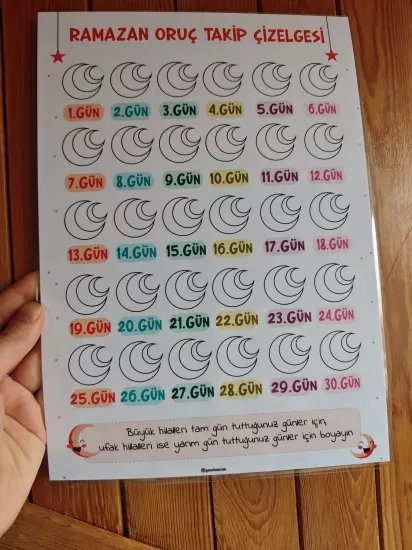 RAMAZAN ORUÇ TAKİP ÇİZELGESİ
1.GÜN 2.GÜN 3.GÜN 4.GÜN 5.GÜN 6.GÜN
7.GÜN 8.GÜN 9.GÜN 10.GÜN 11.GÜN 12.GÜN
13.GÜN 14.GÜN 15.GÜN 16.GÜN 17.GÜN 18.GÜN
19.GÜN 20.GÜN 21.GÜN 22.GÜN 23.GÜN 24.GÜN
25.GÜN 26.GÜN 27.GÜN 28.GÜN 29.GÜN 30.GÜN
Büyük hilalleri tam gün tuttuğunuz günler için,
ufak hilalleri ise yarım gün tuttuğunuz günler için boyayın